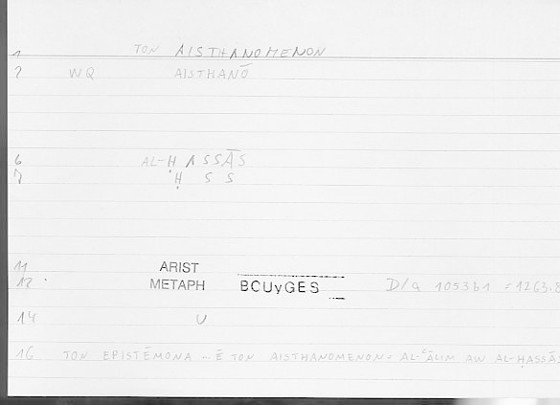 1 TON AISTHANOMENON
2 WQ AISTHANŌ
6 AL-ḤASSĀS
7 Ḥ S S
11 ARIST
12 METAPH BCUyGES D/a 1053b1 = 1263.8
14 U
16 TON EPISTĒMONA ... Ē TON AISTHANOMENON AL-ʿĀLIM AW AL-ḤASSĀS